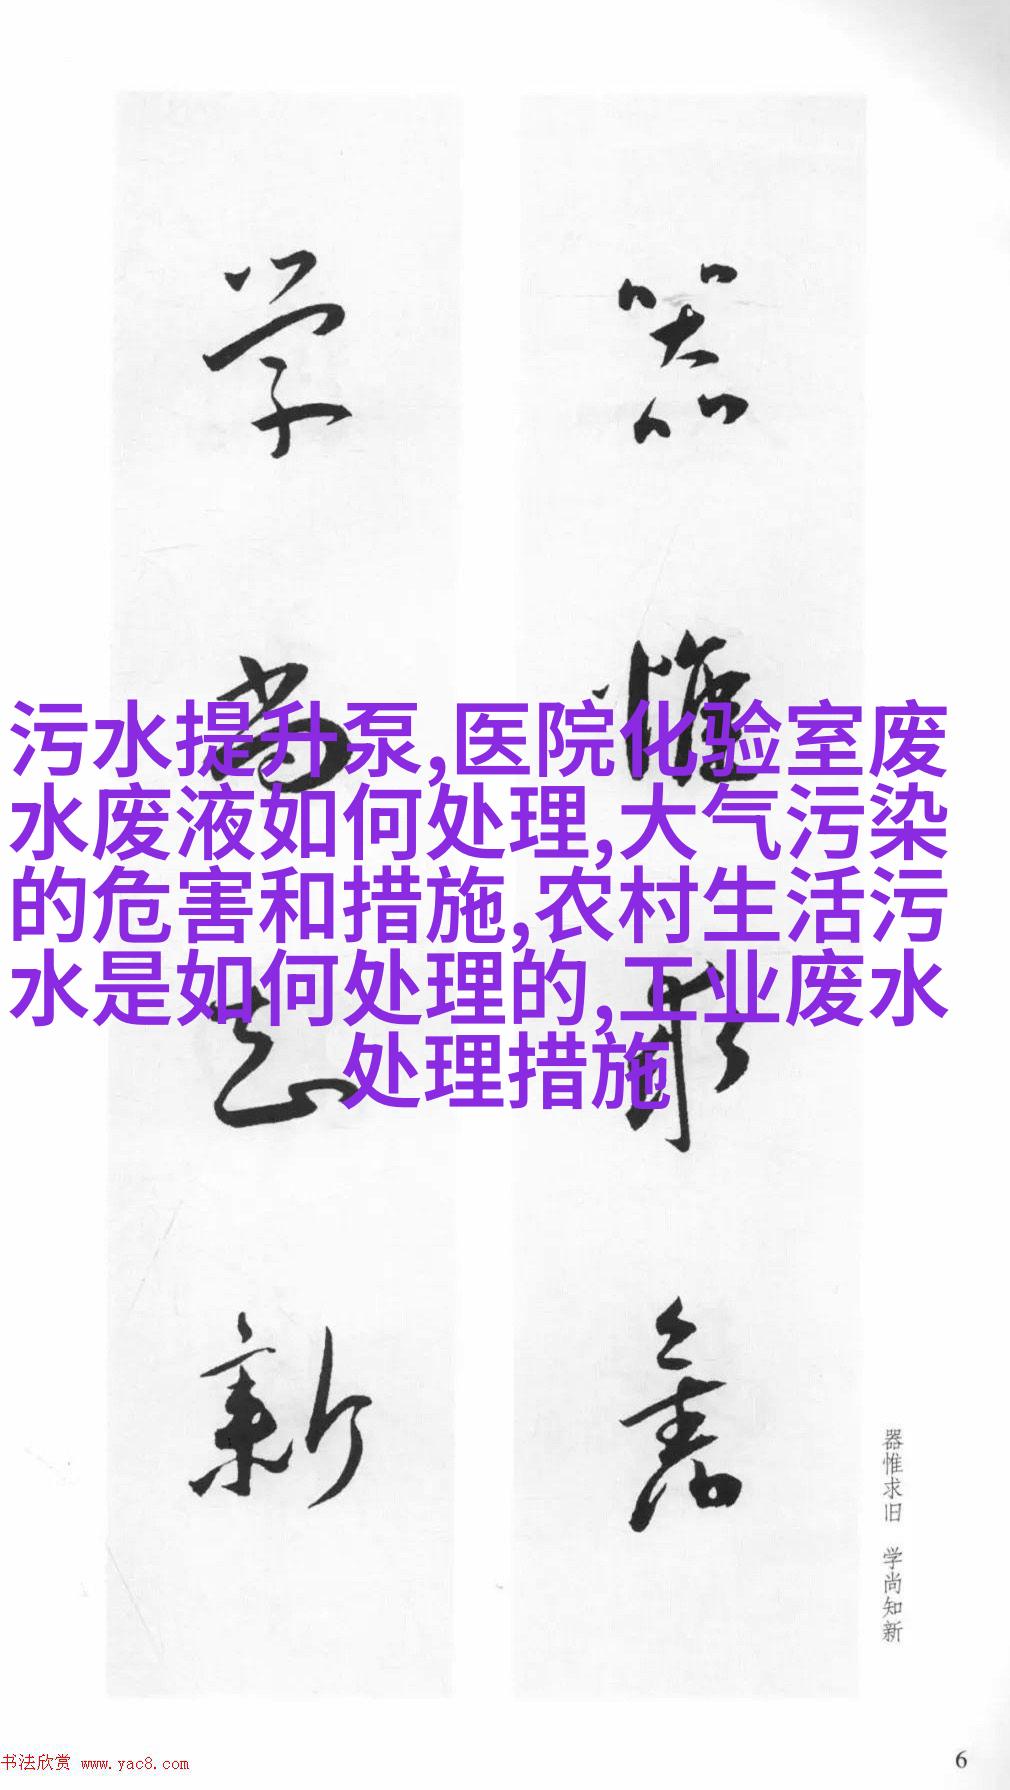 器惟求旧
学尚知新
污水提升泵,医院化验室废
水废液如何处理,大气污染
的危害和措施,农村生活污
水是如何处理的,工业废水
处理措施
器惟求旧 学尚知新
6
书法欣赏 www.yac8.com